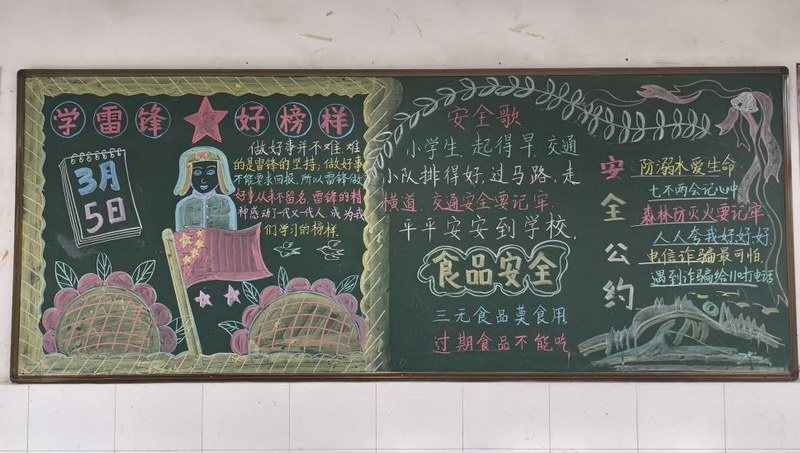 学雷锋★好榜样
3月
5日
做好事并不难,难
的是雷锋的坚持;做好事
不能要求回报,所以雷锋做
好事从来不留名,雷锋的精
神感动了一代又一代人,成为我
们学习的榜样.
安全歌
小学生,起得早,交通
小队排得好,过马路,走
横道,交通安全要记牢.
平平安安到学校.
食品安全
三元食品莫食用
过期食品不能吃
安全公约
防溺水爱生命
七不两会记心中
森林防灭火要记牢
人人夸我好好好
电信诈骗最可怕
遇到诈骗给110打电话